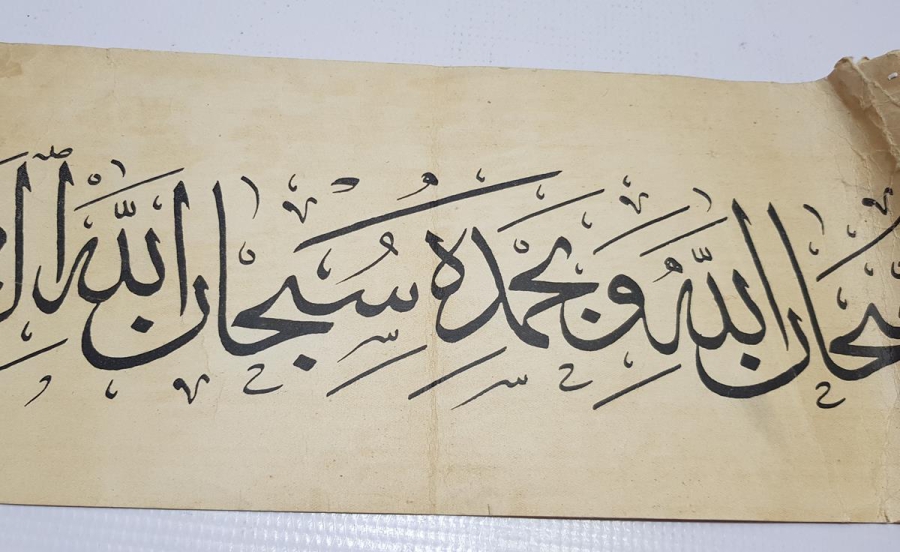 سُبْحَانَ اللّٰهِ وَبِحَمْدِهِ سُبْحَانَ اللّٰهِ